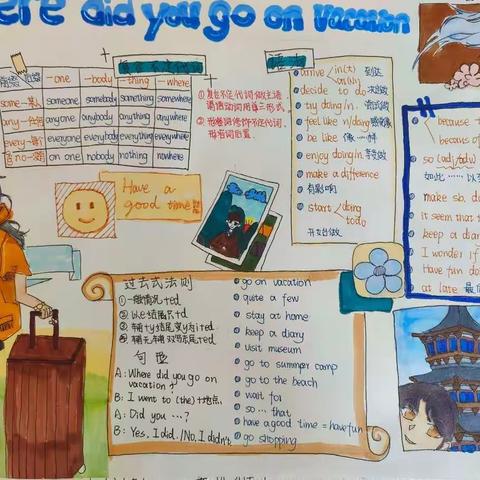 ere did you go on vacation
-one -body -thing -where
some-某 someone somebody something somewhere
any- anyone anybody anything anywhere
every- everyone everybody everything everywhere
no- on one nobody nothing nowhere
①复合不定代词做主语
谓语动词用单三形式
②形容词修饰不定代词,
形容词后置.
Have a
good time
arrive in(t) 到达
at(小)
decide to do 决定做
try doing/n. 尝试做
feel like n/doing 感觉像
be like 像…一样
enjoy doing/n. 享受做
make a difference
有影响
start doing
to do
开始做
because
because of
so (adj/adv)
如此……以至
make sb. do
it seem that
keep a diary
I wonder if
Have fun do
at late
过去式法则
①一般情况+ed
②以e结尾只+d
③辅+y结尾变y为i+ed
④辅元辅双写末尾+ed
句型
A: Where did you go on
vacation?
B: I went to (the)+地点.
A: Did you ...?
B: Yes, I did. / No, I didn't
go on vacation
quite a few
stay at home
keep a diary
visit museum
go to summer camp
go to the beach
wait for
so ... that
have a good time = have fun
go shopping